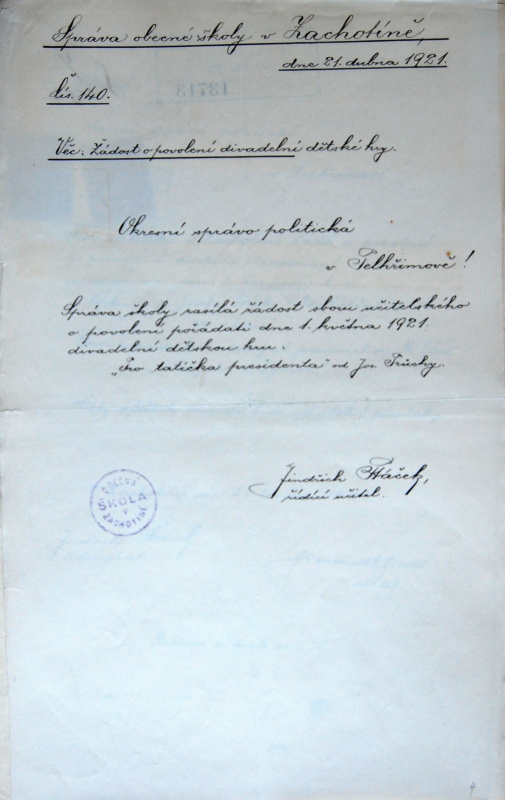 Správa obecné školy v Zachotíně,
dne 21. dubna 1921.
13713
Čís. 140.
Věc: Žádost o povolení divadelní dětské hry.
Okresní správo politická
v Pelhřimově!
Správa školy zasílá žádost sboru učitelského
o povolení pořádati dne 1. května 1921.
divadelní dětskou hru.
„Pro tatíčka presidenta" od Jos. Průchy.
Jindřich Ptáček,
řídící učitel.
OBECNÁ
ŠKOLA
V
ZACHOTÍNĚ